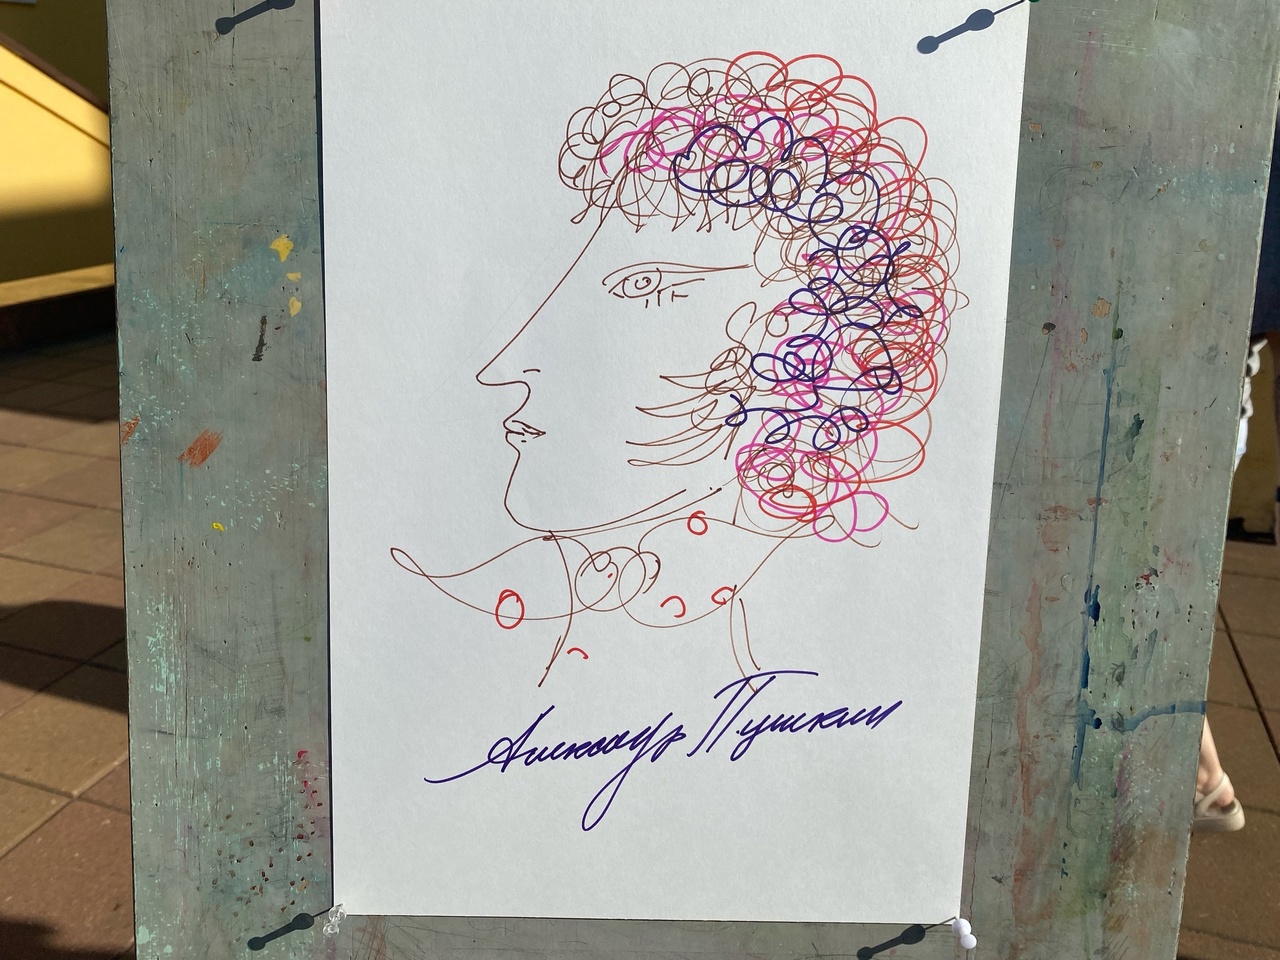 Александр Пушкин